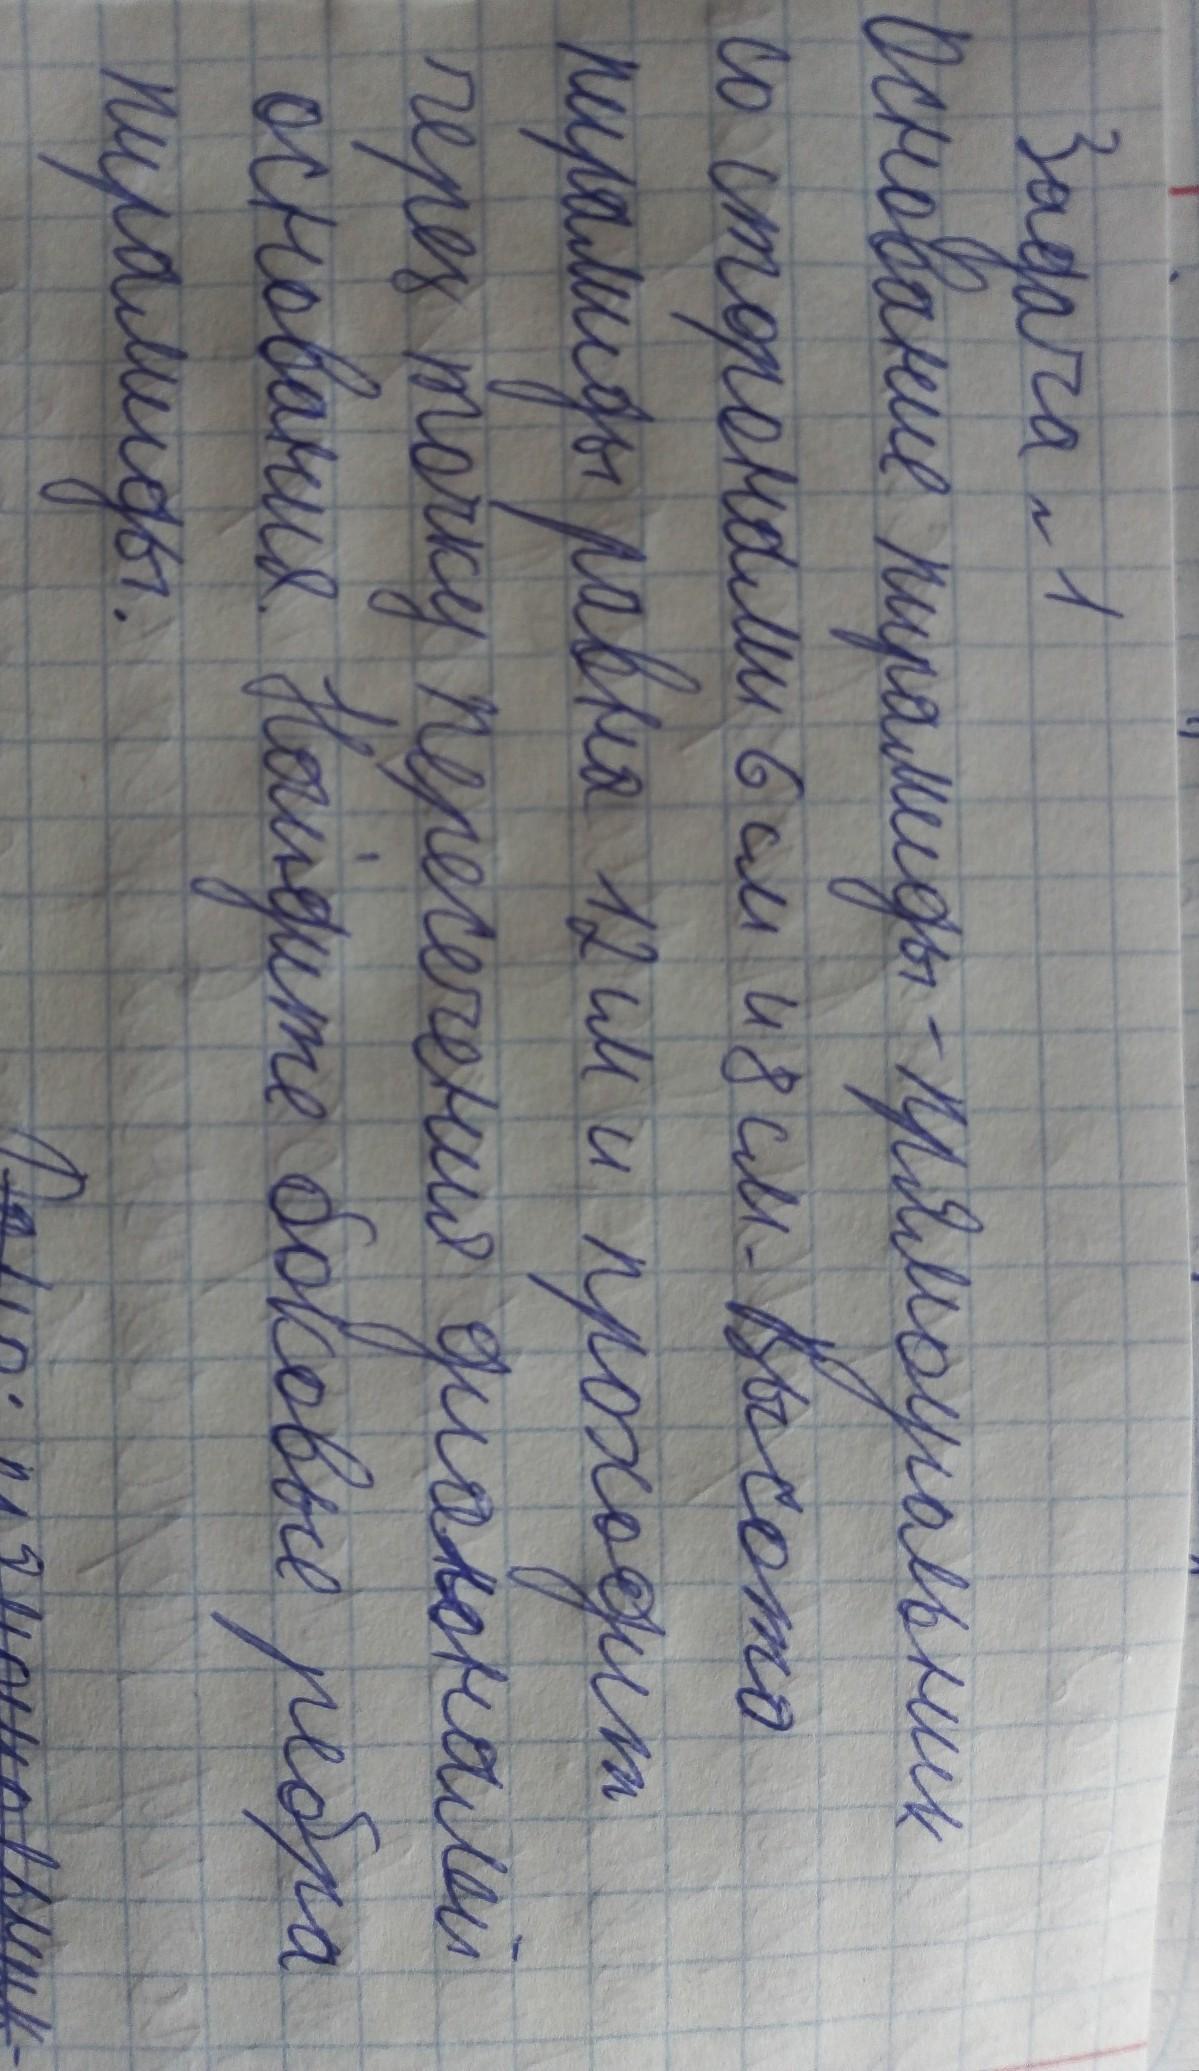 Задача ~ 1
Основание пирамиды - прямоугольник
со сторонами 6 см и 8 см. Высота
пирамиды равна 12 см и проходит
через точку пересечения диагоналей
основания. Найдите боковые ребра
пирамиды.